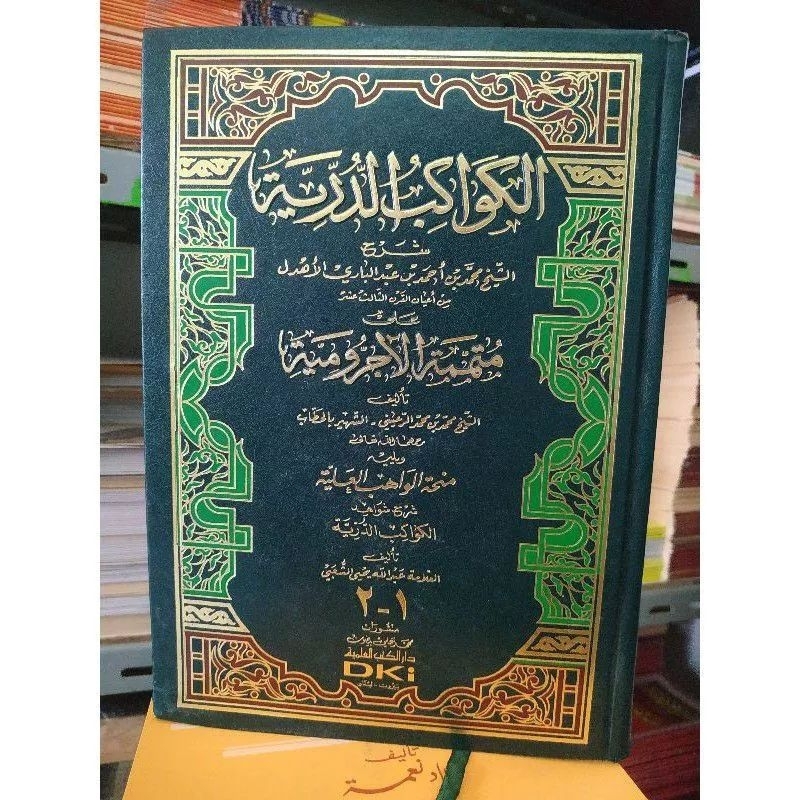 الكَوَاكِبُ الدُّرِّيَّة
شَرح
الشَّيْخ مُحَمَّد بن أحمَد بن عَبد البَاري الأهْدَل
مِن أعْيَان القَرن الثَّالث عَشر
عَلى
مُتَمِّمَة الآجُرُّومِيَّة
تأليف
الشَّيخ محمَّد بن محمَّد الرّعَيني - الشهير بالحطّاب
رحمهما الله تعالى
ويليه
منحة الواهب العليّة
شرح شواهد
الكواكب الدّريّة
تأليف
العلامة عبد الله يحيى الشعبي
١-٢
منشورات
محمد علي بيضون
دار الكتب العلمية
DKi
بيروت - لبنان
تأليف
نعمة